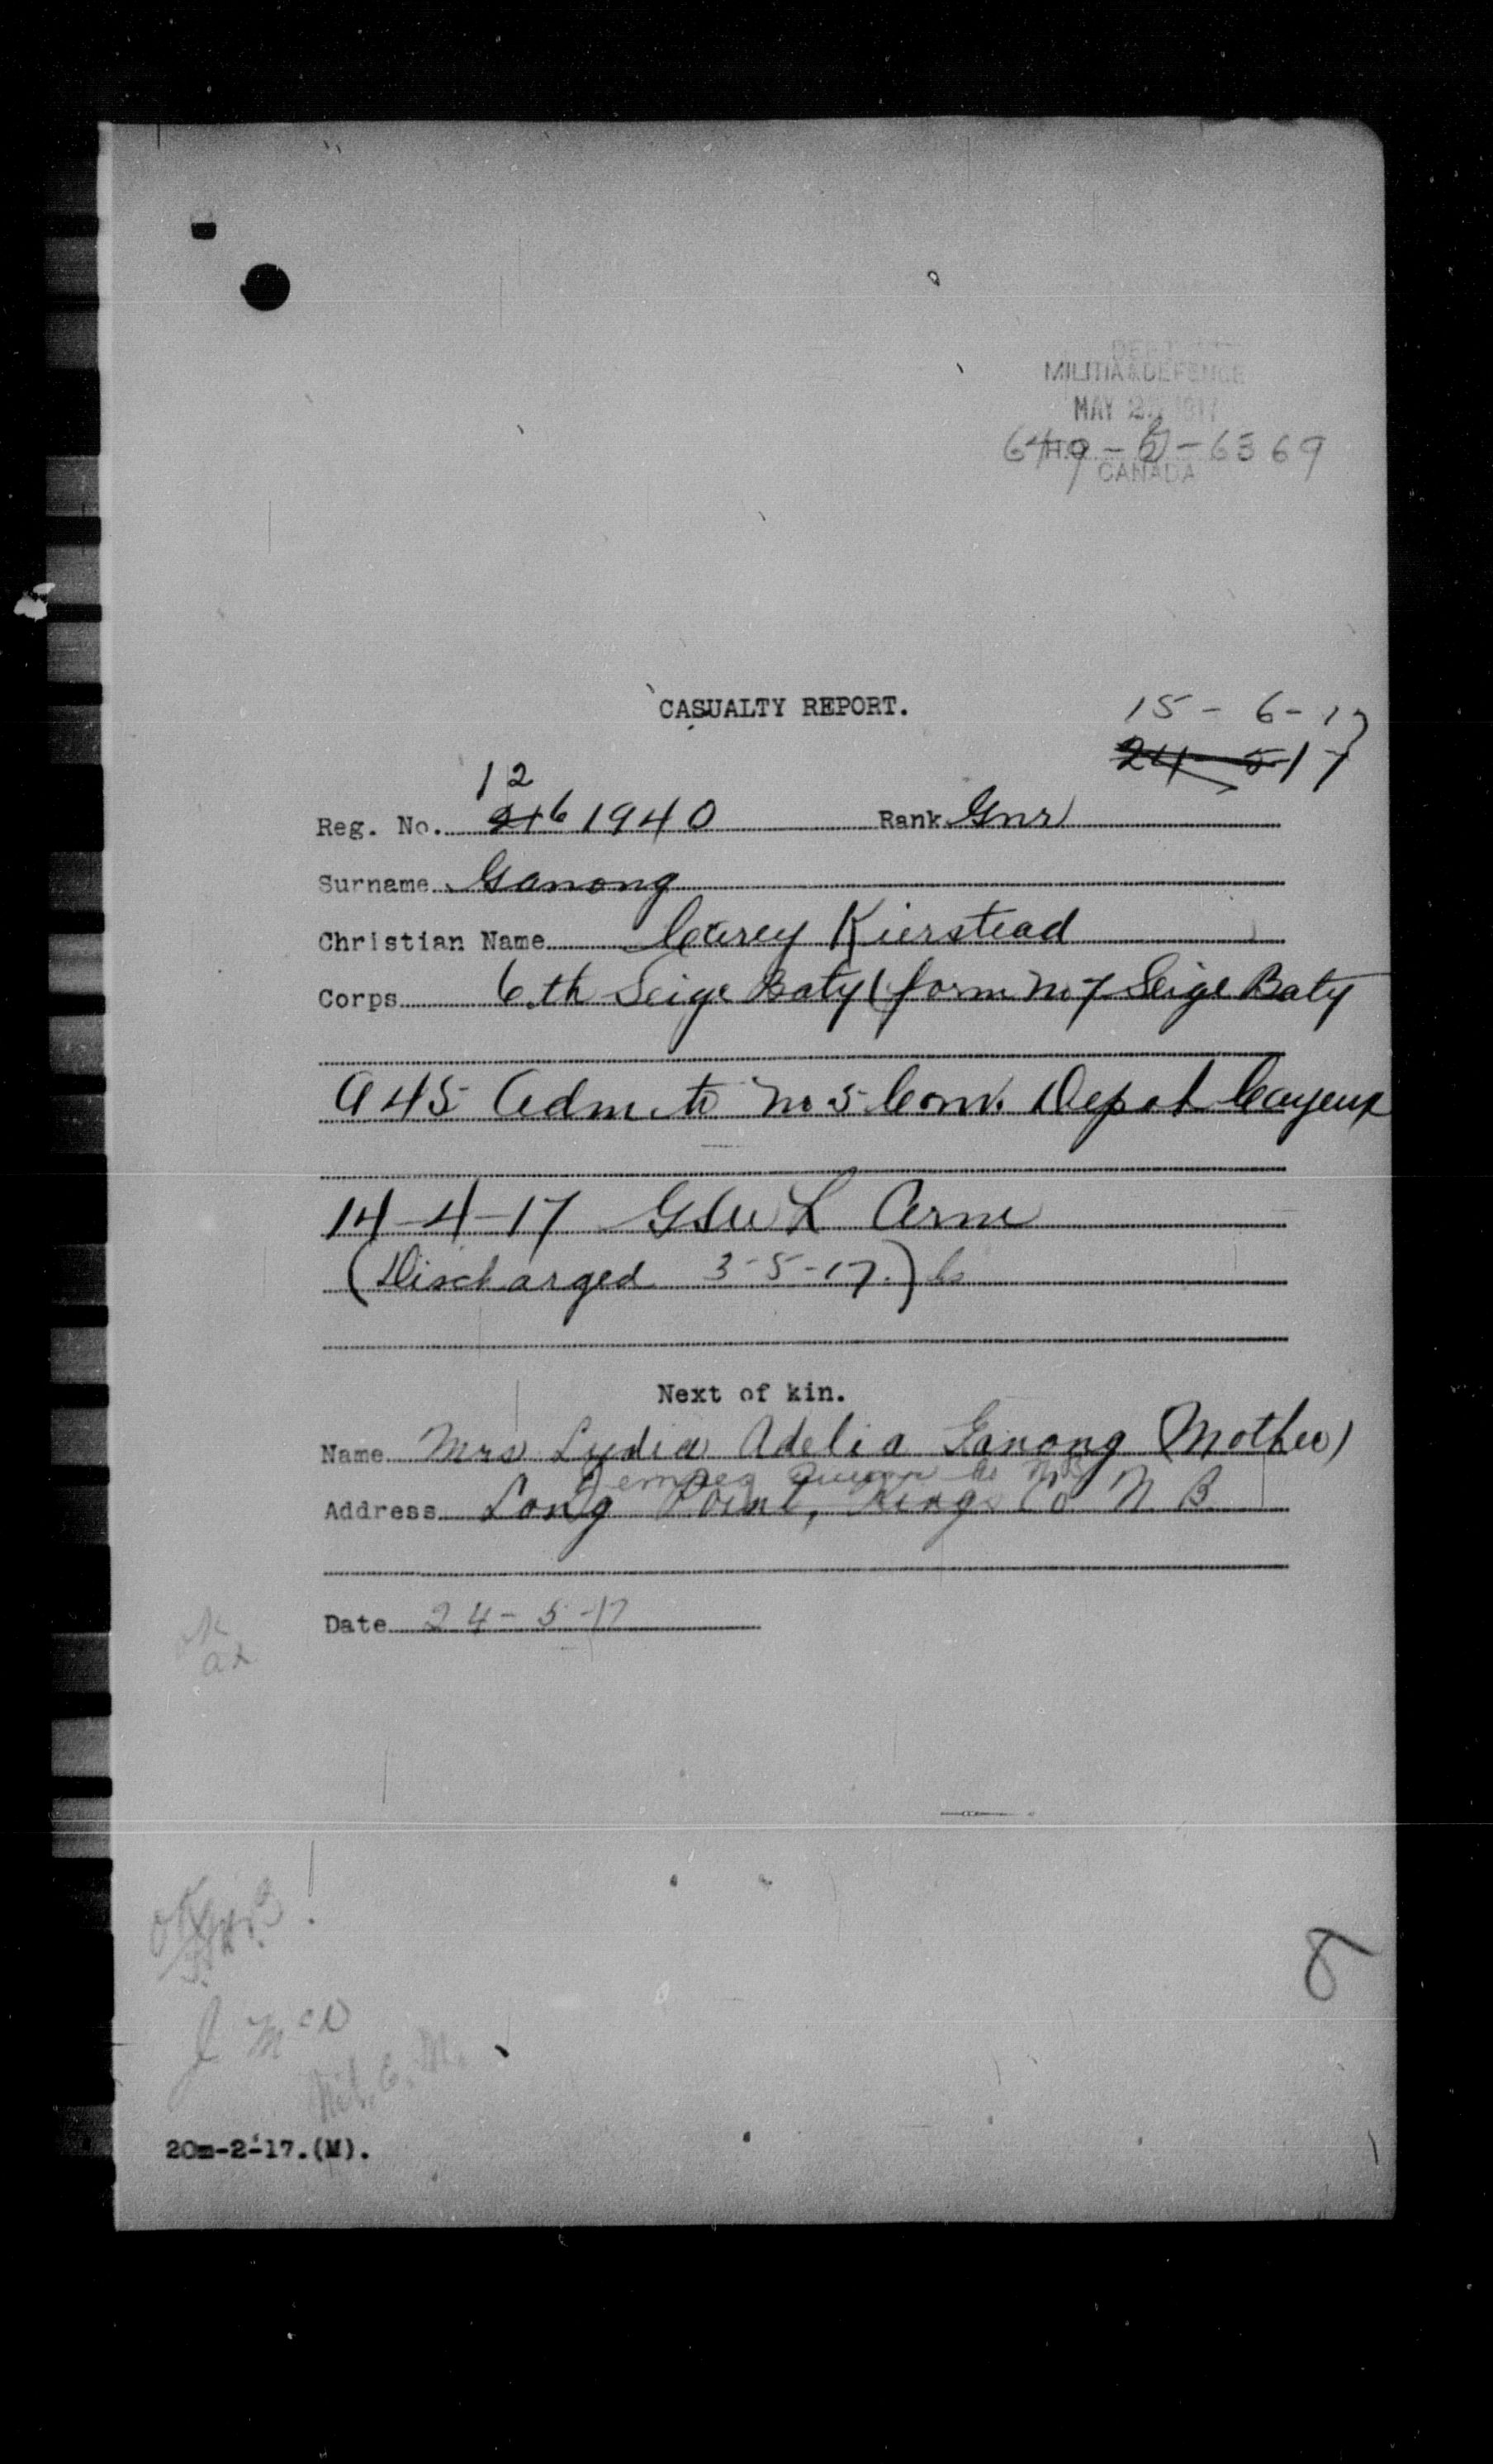 DEPT
MILITIA & DEFENCE
MAY 1917
649-G-6369
H.Q.
CANADA
CASUALTY REPORT.
15 - 6 - 17
24 - 5 17
12
Reg. No. 2161940 Rank Gnr
Surname Ganong
Christian Name Carey Kierstead
Corps 6th Seige Baty (form No 7 Seige Baty
A 45 Adm. to No 5 Conv. Depot Cayeux
14-4-17 GSW L Arm
(Discharged 3-5-17.)
Next of kin.
Name Mrs Lydia Adelia Ganong (Mother)
Jemseg Queens Co NB
Address Long Point, Kings Co N B
Date 24-5-17
J McD
8
20m-2-17.(M).